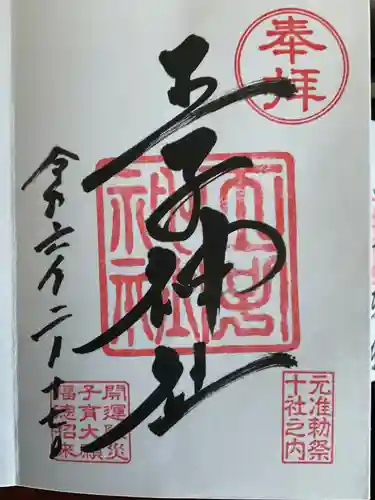 奉拝
王子神社
令和六年二月十七日
元准勅祭
十社之内
開運除災
子育大願
福徳招来